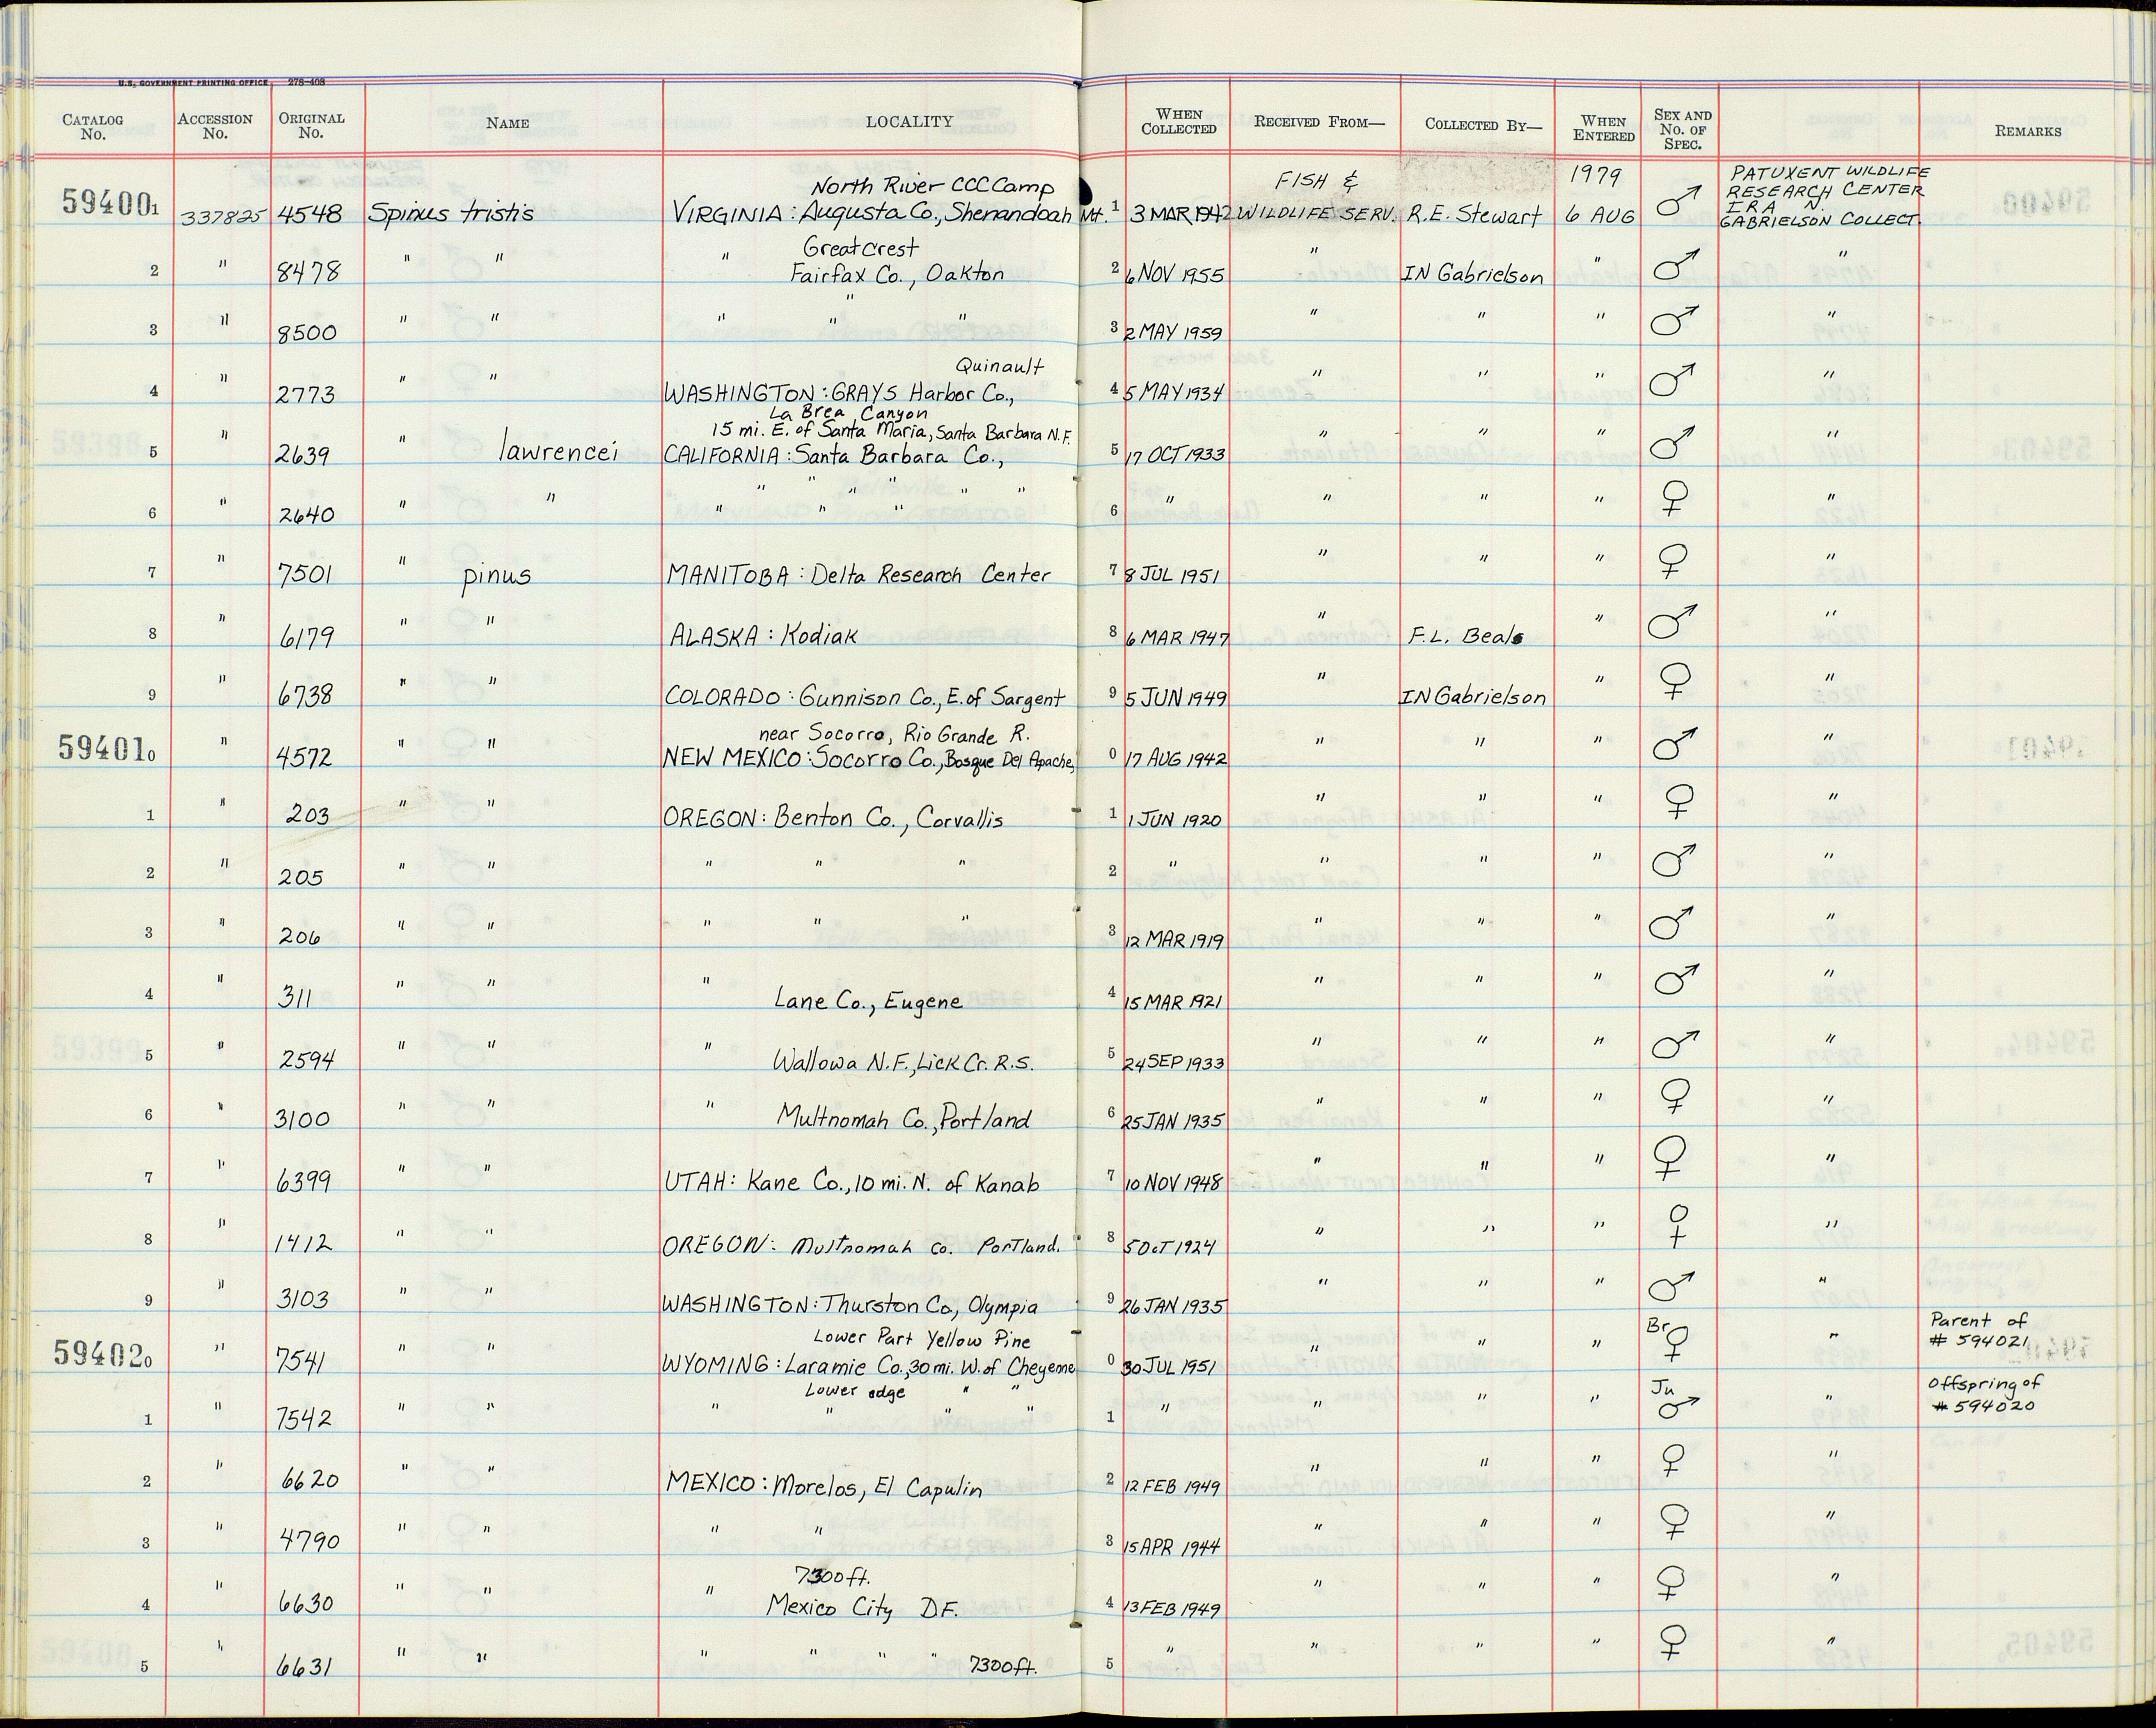 U.S. GOVERNMENT PRINTING OFFICE 278-408
CATALOG No. ACCESSION No. ORIGINAL No. NAME LOCALITY WHEN COLLECTED RECEIVED FROM— COLLECTED BY— WHEN ENTERED SEX AND No. OF SPEC. REMARKS
North River CCC Camp FISH & 1979 PATUXENT WILDLIFE RESEARCH CENTER
594001 337825 4548 Spinus tristis VIRGINIA: Augusta Co., Shenandoah Mt. 1 3 MAR 1942 WILDLIFE SERV. R.E. Stewart 6 AUG ♂ IRA N. GABRIELSON COLLECT.
Great crest
2 " 8478 " " " Fairfax Co., Oakton 2 6 NOV 1955 " IN Gabrielson " ♂ "
"
3 " 8500 " " " " " 3 2 MAY 1959 " " " ♂ "
Quinault
4 " 2773 " " WASHINGTON: GRAYS Harbor Co., 4 5 MAY 1934 " " " ♂ "
La Brea Canyon
15 mi. E. of Santa Maria, Santa Barbara N.F.
5 " 2639 " lawrencei CALIFORNIA: Santa Barbara Co., 5 17 OCT 1933 " " " ♂ "
" " " " " "
6 " 2640 " " " " " 6 " " " " ♀ "
7 " 7501 " pinus MANITOBA: Delta Research Center 7 8 JUL 1951 " " " ♀ "
8 " 6179 " " ALASKA: Kodiak 8 6 MAR 1947 " F.L. Beals " ♂ "
9 " 6738 " " COLORADO: Gunnison Co., E. of Sargent 9 5 JUN 1949 " IN Gabrielson " ♀ "
near Socorro, Rio Grande R.
594010 " 4572 " " NEW MEXICO: Socorro Co., Bosque Del Apache, 0 17 AUG 1942 " " " ♂ "
1 " 203 " " OREGON: Benton Co., Corvallis 1 1 JUN 1920 " " " ♀ "
2 " 205 " " " " " 2 " " " " ♂ "
3 " 206 " " " " " 3 12 MAR 1919 " " " ♂ "
4 " 311 " " " Lane Co., Eugene 4 15 MAR 1921 " " " ♂ "
5 " 2594 " " " Wallowa N.F., Lick Cr. R.S. 5 24 SEP 1933 " " " ♂ "
6 " 3100 " " " Multnomah Co., Portland 6 25 JAN 1935 " " " ♀ "
7 " 6399 " " UTAH: Kane Co., 10 mi. N. of Kanab 7 10 NOV 1948 " " " ♀ "
8 " 1412 " " OREGON: Multnomah Co. Portland. 8 5 OCT 1924 " " " ♀ "
9 " 3103 " " WASHINGTON: Thurston Co, Olympia 9 26 JAN 1935 " " " ♂ "
Lower Part Yellow Pine Br Parent of
594020 " 7541 " " WYOMING: Laramie Co., 30 mi. W. of Cheyenne 0 30 JUL 1951 " " " ♀ " # 594021
Lower edge " " Ju Offspring of
1 " 7542 " " " " " " 1 " " " " ♂ " # 594020
2 " 6620 " " MEXICO: Morelos, El Capulin 2 12 FEB 1949 " " " ♀ "
3 " 4790 " " " " 3 15 APR 1944 " " " ♀ "
7300 ft.
4 " 6630 " " " Mexico City D.F. 4 13 FEB 1949 " " " ♀ "
5 " 6631 " " " " " " 7300 ft. 5 " " " " ♀ "